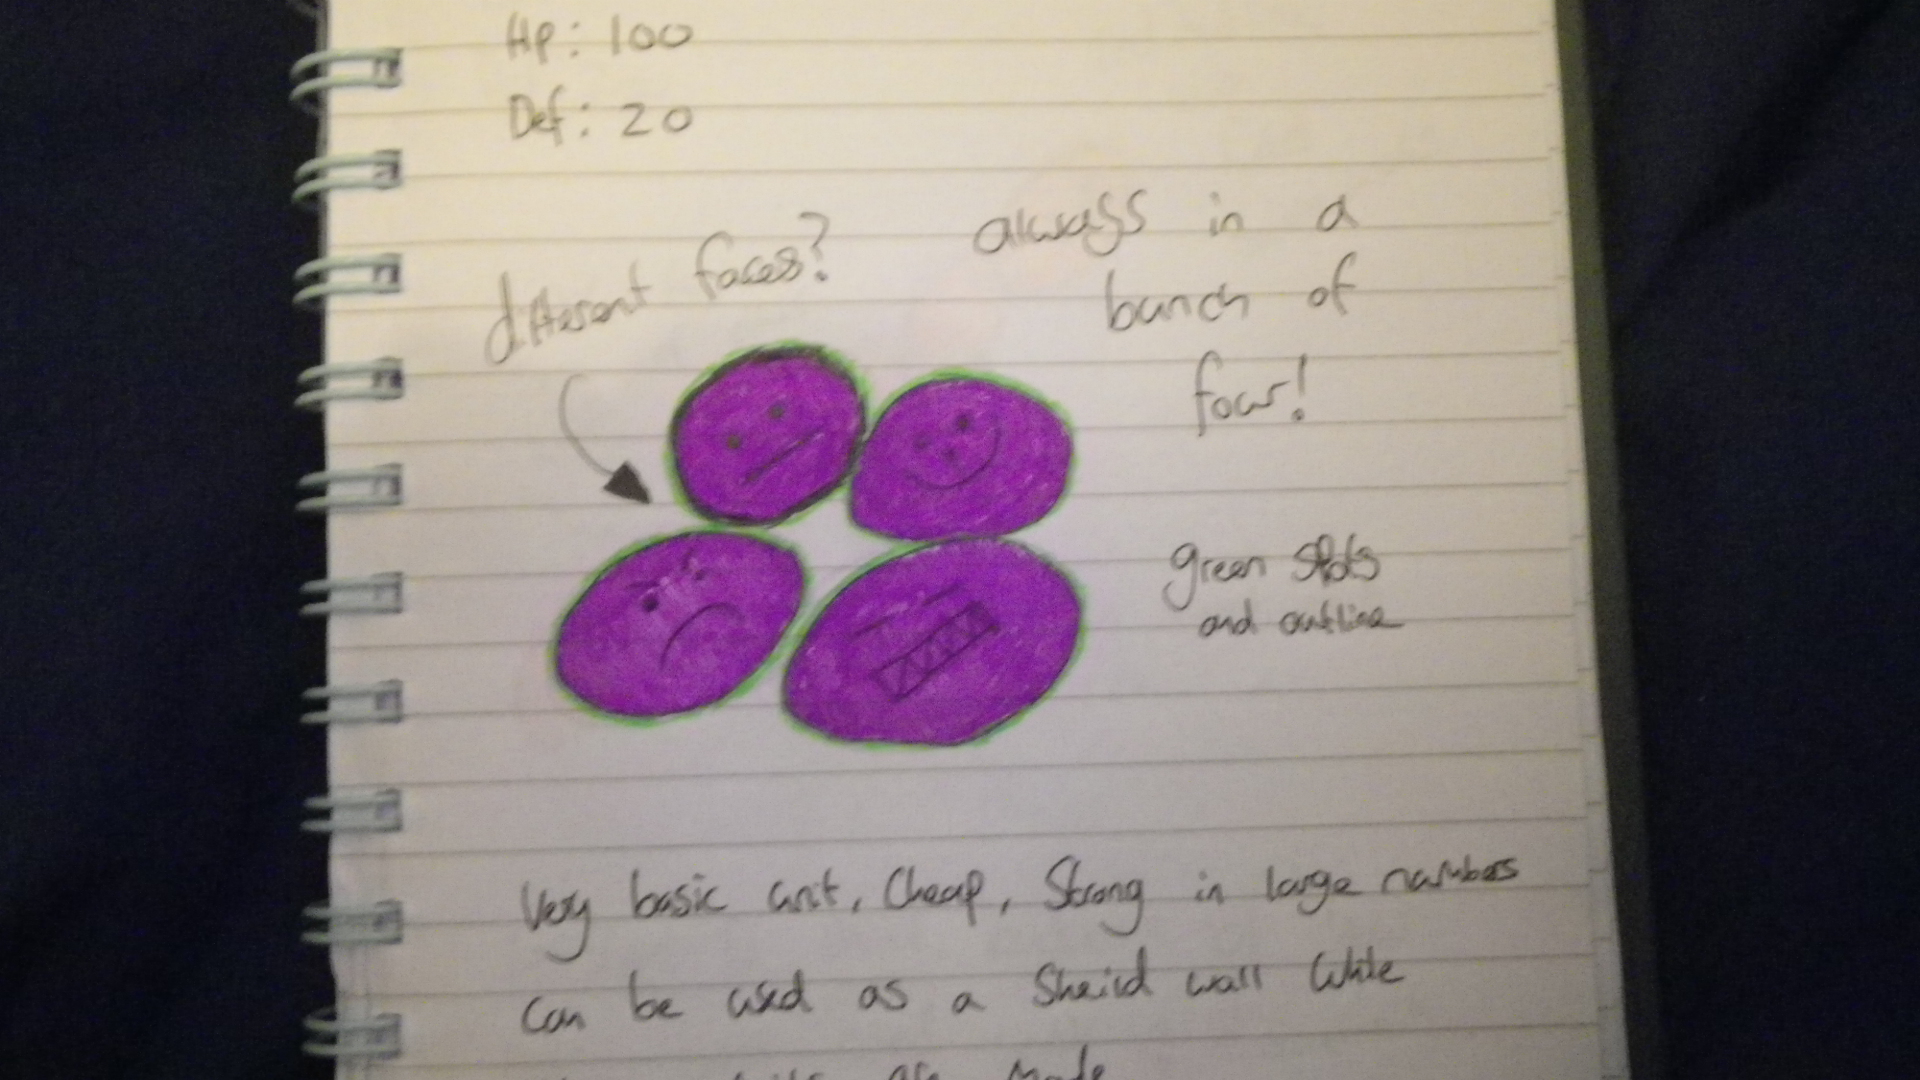 Hp: 100
Def: 20
different faces?
always in a
bunch of
four!
green spots
and outline
Very basic unit, Cheap, Strong in large numbers
can be used as a Sheild wall While
are made